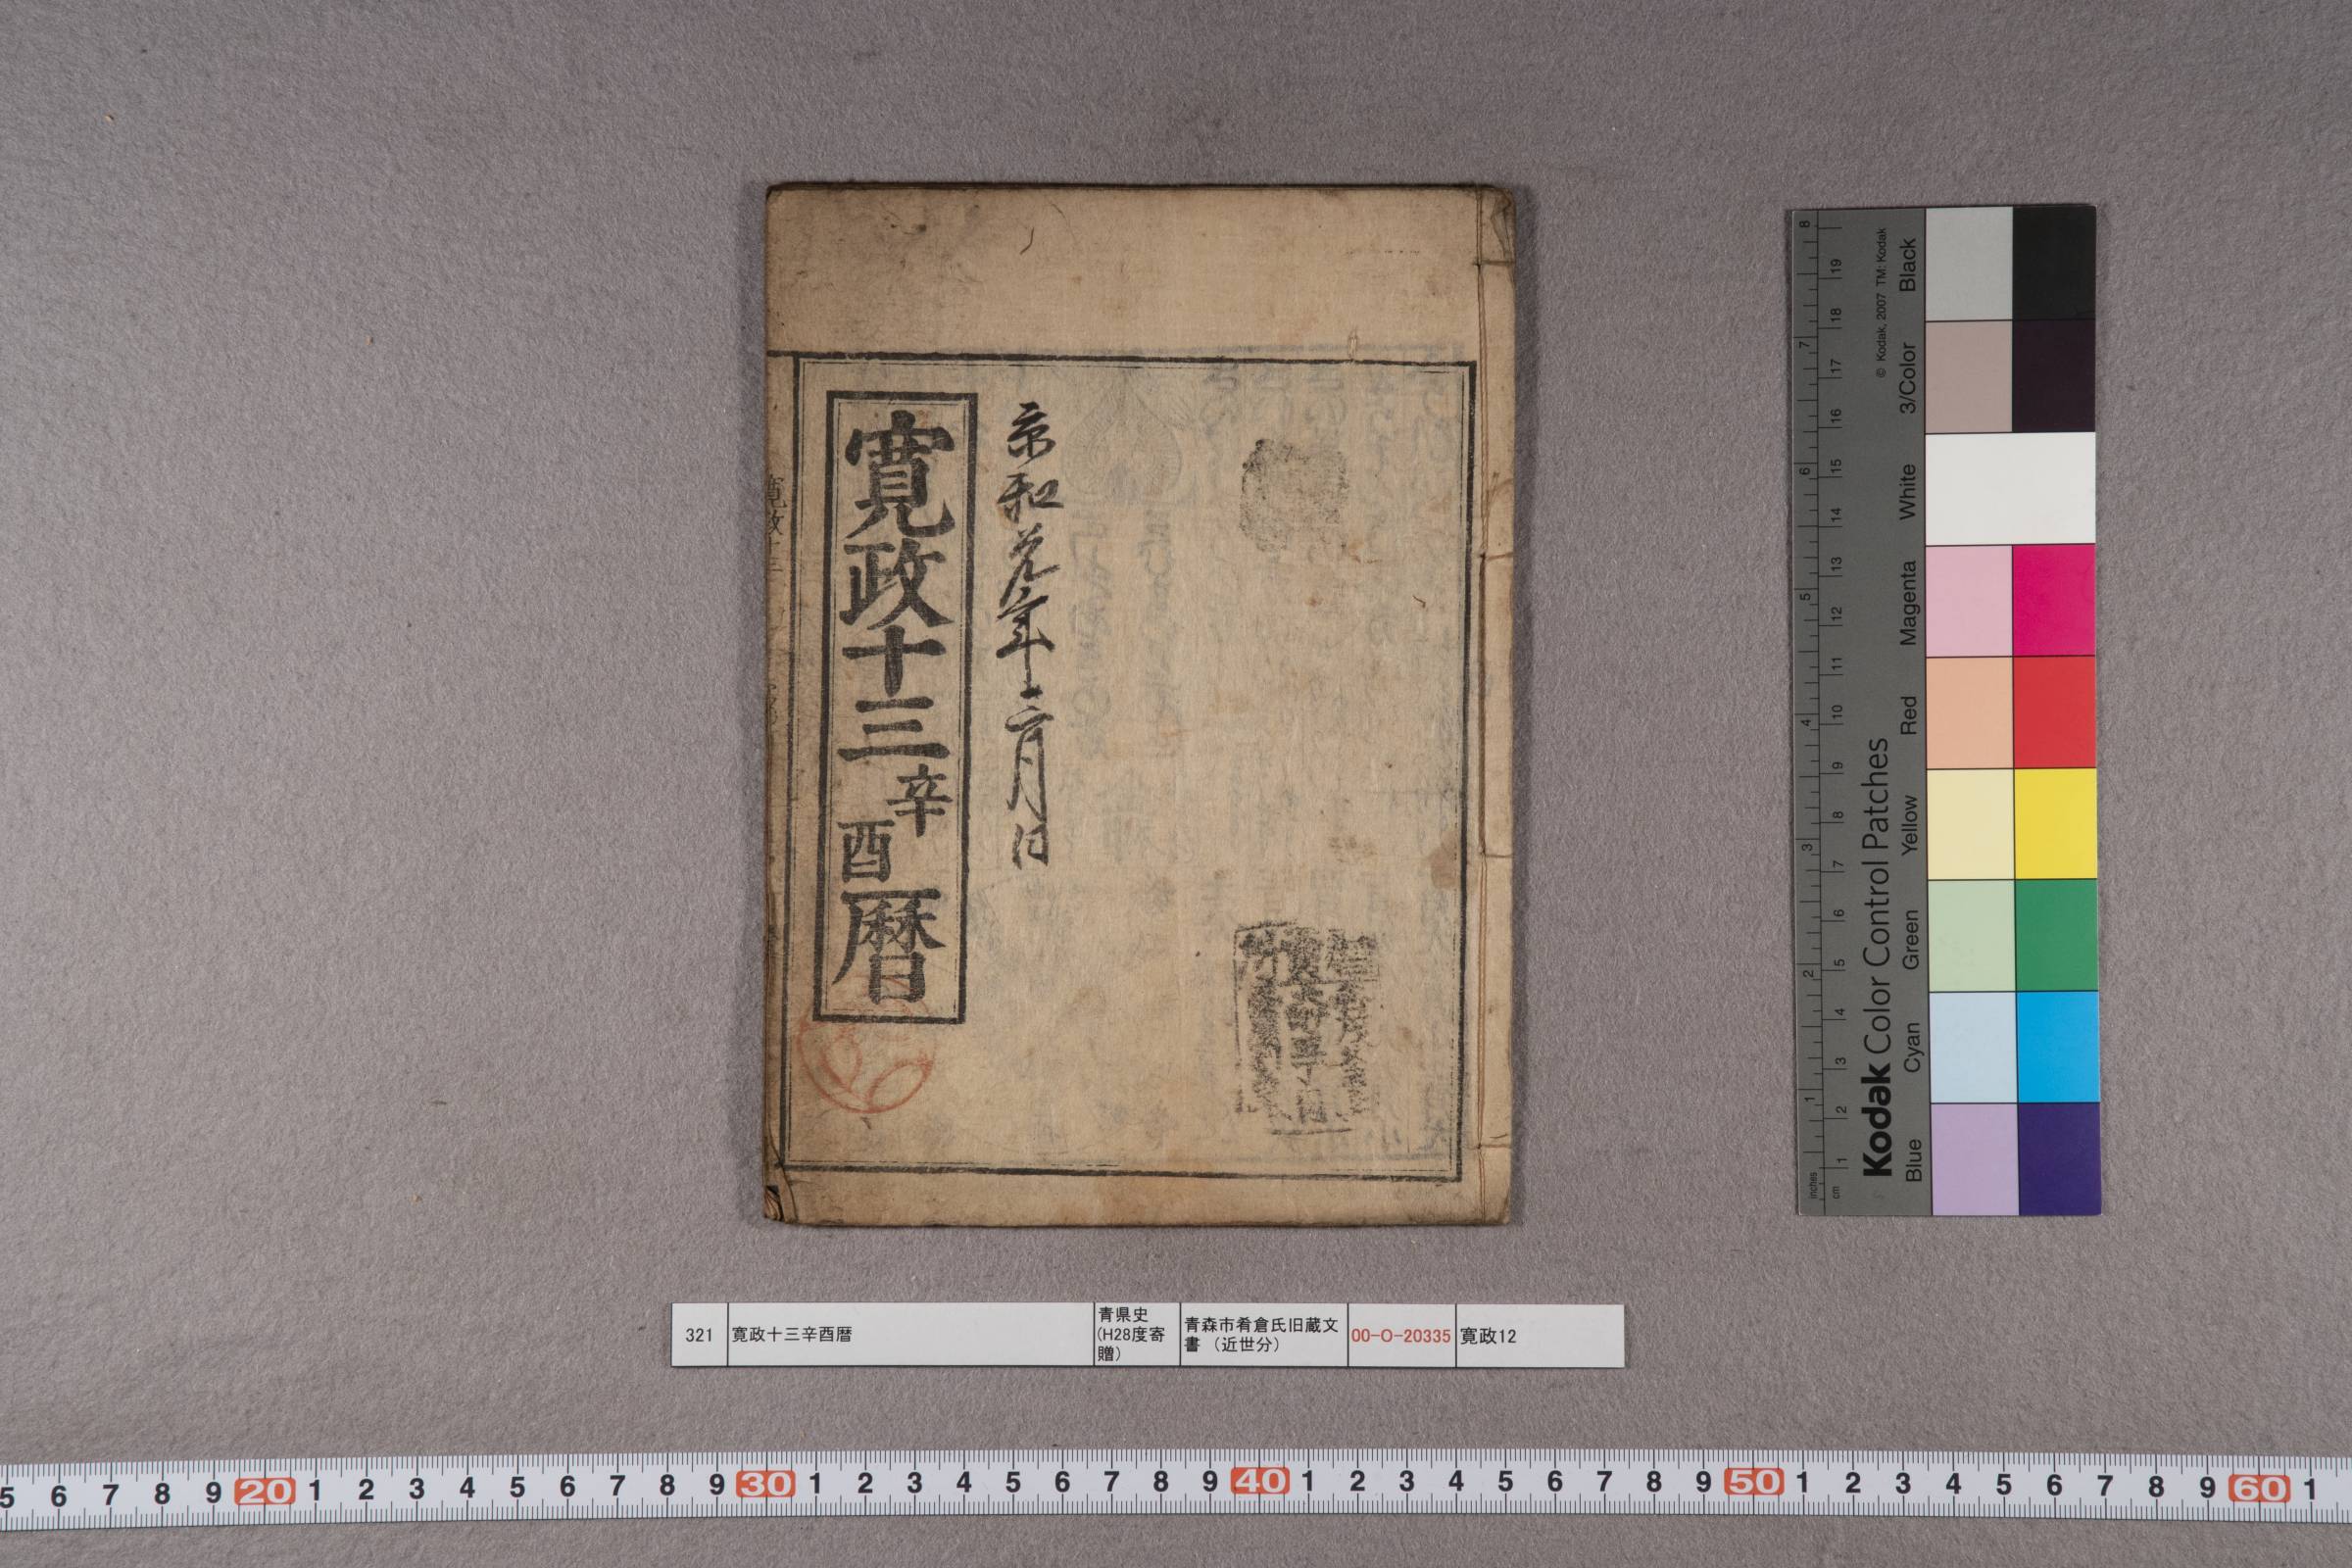 享和元年十二月日
寛政十三辛酉暦
321
寛政十三辛酉暦
青県史
(H28度寄
贈)
青森市肴倉氏旧蔵文
書 (近世分)
00-O-20335
寛政12
5 6 7 8 9 20 1 2 3 4 5 6 7 8 9 30 1 2 3 4 5 6 7 8 9 40 1 2 3 4 5 6 7 8 9 50 1 2 3 4 5 6 7 8 9 60 1
Kodak Color Control Patches
© Kodak, 2007 TM: Kodak
Blue Cyan Green Yellow Red Magenta White 3/Color Black
inches 1 2 3 4 5 6 7 8
cm 1 2 3 4 5 6 7 8 9 10 11 12 13 14 15 16 17 18 19